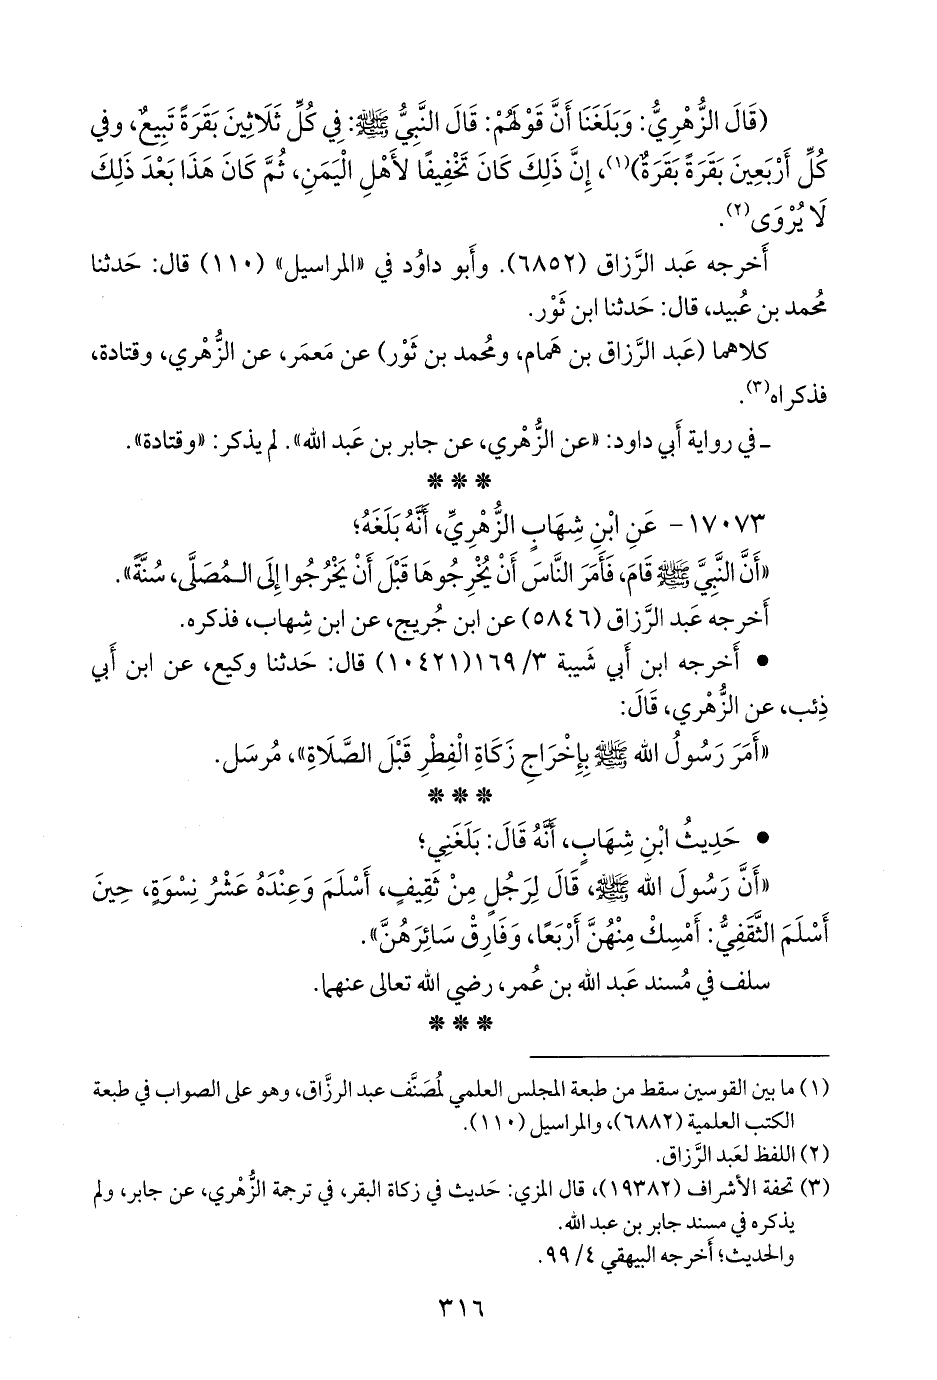 (قَالَ الزُّهْرِيُّ: وَبَلَغَنَا أَنَّ قَوْلَهُمْ: قَالَ النَّبِيُّ ﷺ: فِي كُلِّ ثَلَاثِينَ بَقَرَةً تَبِيعٌ، وفِي
كُلِّ أَرْبَعِينَ بَقَرَةً بَقَرَةٌ)(١)، إِنَّ ذَلِكَ كَانَ تَخْفِيفًا لأَهْلِ الْيَمَنِ، ثُمَّ كَانَ هَذَا بَعْدَ ذَلِكَ
لَا يُرْوَى(٢).
أَخرجه عَبد الرَّزاق (٦٨٥٢). وأَبو داوُد في «المراسيل» (١١٠) قال: حَدثنا
مُحمد بن عُبيد، قال: حَدثنا ابن ثَوْر.
كلاهما (عَبد الرَّزاق بن هَمام، ومُحمد بن ثَوْر) عن مَعمَر، عن الزُّهْري، وقتادة،
فذكراه(٣).
ـ في رواية أَبي داود: «عن الزُّهْري، عن جابر بن عَبد الله». لم يذكر: «وقتادة».
* * *
١٧٠٧٣- عَنِ ابْنِ شِهَابٍ الزُّهْرِيِّ، أَنَّهُ بَلَغَهُ؛
«أَنَّ النَّبِيَّ ﷺ قَامَ، فَأَمَرَ النَّاسَ أَنْ يُخْرِجُوهَا قَبْلَ أَنْ يَخْرُجُوا إِلَى الـمُصَلَّى، سُنَّةً».
أَخرجه عَبد الرَّزاق (٥٨٤٦) عن ابن جُريج، عن ابن شِهاب، فذكره.
• أَخرجه ابن أَبي شَيبة ٣/ ١٦٩(١٠٤٢١) قال: حَدثنا وكيع، عن ابن أَبي
ذِئب، عن الزُّهْري، قَالَ:
«أَمَرَ رَسُولُ الله ﷺ بِإِخْرَاجِ زَكَاةِ الْفِطْرِ قَبْلَ الصَّلَاةِ»، مُرسَل.
* * *
• حَدِيثُ ابْنِ شِهَابٍ، أَنَّهُ قَالَ: بَلَغَنِي؛
«أَنَّ رَسُولَ الله ﷺ، قَالَ لِرَجُلٍ مِنْ ثَقِيفٍ، أَسْلَمَ وَعِنْدَهُ عَشْرُ نِسْوَةٍ، حِينَ
أَسْلَمَ الثَّقَفِيُّ: أَمْسِكْ مِنْهُنَّ أَرْبَعًا، وَفَارِقْ سَائِرَهُنَّ».
سلف في مُسند عَبد الله بن عُمر، رضي الله تعالى عنهما.
* * *
(١) ما بين القوسين سقط من طبعة المجلس العلمي لمُصَنَّف عبد الرزَّاق، وهو على الصواب في طبعة
الكتب العلمية (٦٨٨٢)، والمراسيل (١١٠).
(٢) اللفظ لعَبد الرَّزاق.
(٣) تحفة الأشراف (١٩٣٨٢)، قال المزي: حَديث في زكاة البقر، في ترجمة الزُّهْري، عن جابر، ولم
يذكره في مسند جابر بن عبد الله.
والحديث؛ أَخرجه البيهقي ٤/ ٩٩.
٣١٦